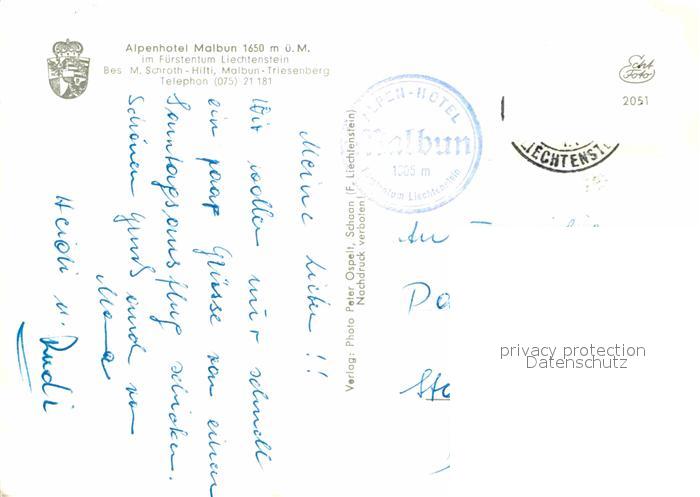 Alpenhotel Malbun 1650 m ü. M.
im Fürstentum Liechtenstein
Bes M. Schroth-Hilti, Malbun-Triesenberg
Telephon (075) 21 181
Meine Lieben !!
Wir wollen nur schnell
ein paar Grüsse von einem
Sonntagsausflug schicken.
Schönen Gruss auch von
Mama
Heidi u. Rudi
Verlag: Photo Peter Ospelt, Schaan (F. Liechtenstein)
Nachdruck verboten!
ALPEN-HOTEL
Malbun
Fürstentum Liechtenstein
Echt
Foto
2051
LIECHTENST
An
privacy protection
Datenschutz